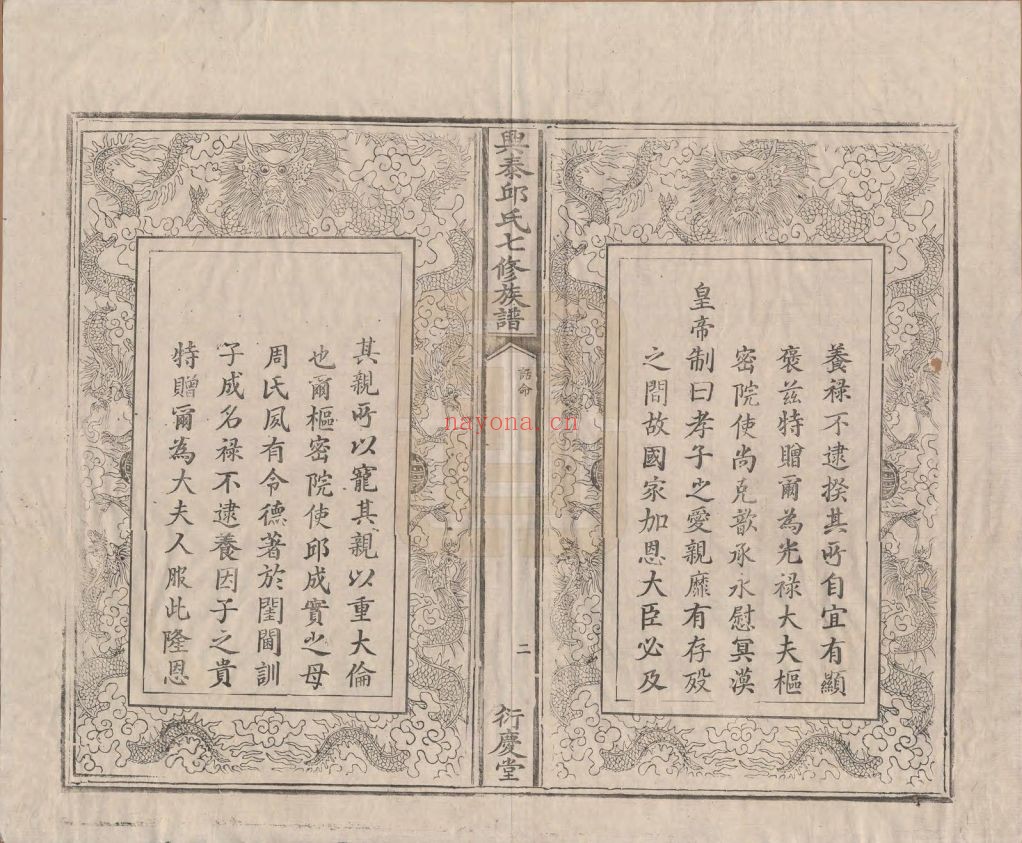 養祿不逮揆其所自宜有顯
褒兹特贈爾為光祿大夫樞
密院使尚克歆承永慰冥漠
皇帝制曰孝子之愛親靡有存歿
之間故國家加恩大臣必及
興泰邱氏七修族譜
誥命
二
衍慶堂
其親所以寵其親以重大倫
也爾樞密院使邱成實之母
周氏夙有令德著於閨閫訓
子成名祿不逮養因子之貴
特贈爾為大夫人服此隆恩
nayona.cn